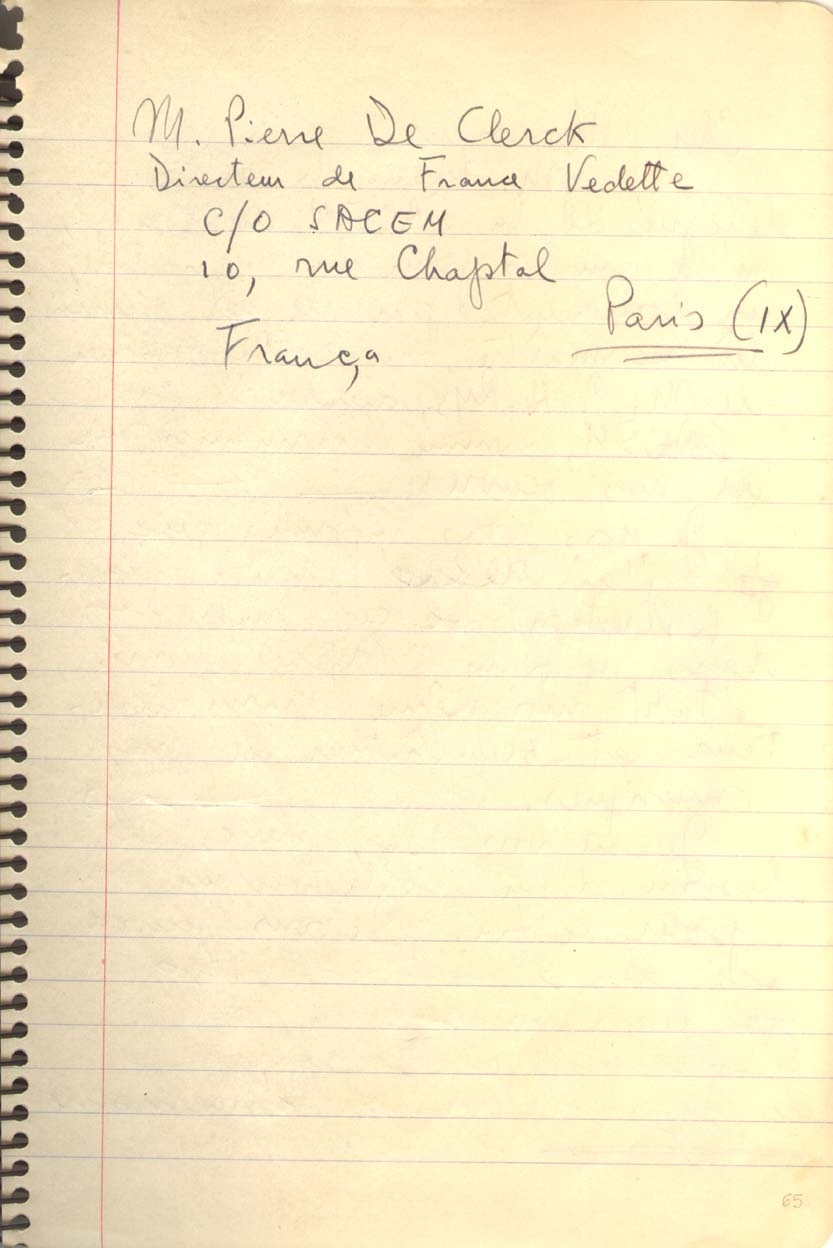 M. Pierre De Clerck
Directeur de France Vedette
C/O SACEM
10, rue Chaptal
Paris (IX)
França
65